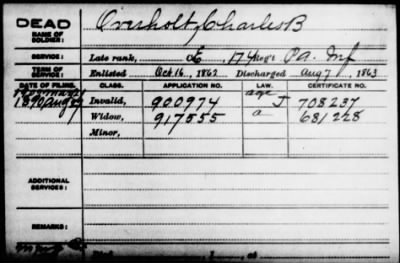 DEAD Overholtz, Charles B
NAME OF SOLDIER:
SERVICE: Late rank, E, 174 Reg't Pa. Inf
TERM OF SERVICE: Enlisted Oct. 16, 1862 Discharged Aug 7, 1863
DATE OF FILING. CLASS. APPLICATION NO. LAW. CERTIFICATE NO.
Invalid, 900974 J 708237
1890 Aug Widow, 917555 a 681228
Minor,
ADDITIONAL SERVICES:
REMARKS: